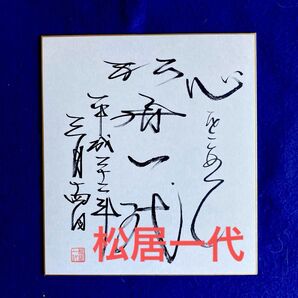 心をこめて
松居一代
平成二十二年
三月十四日
松居一代